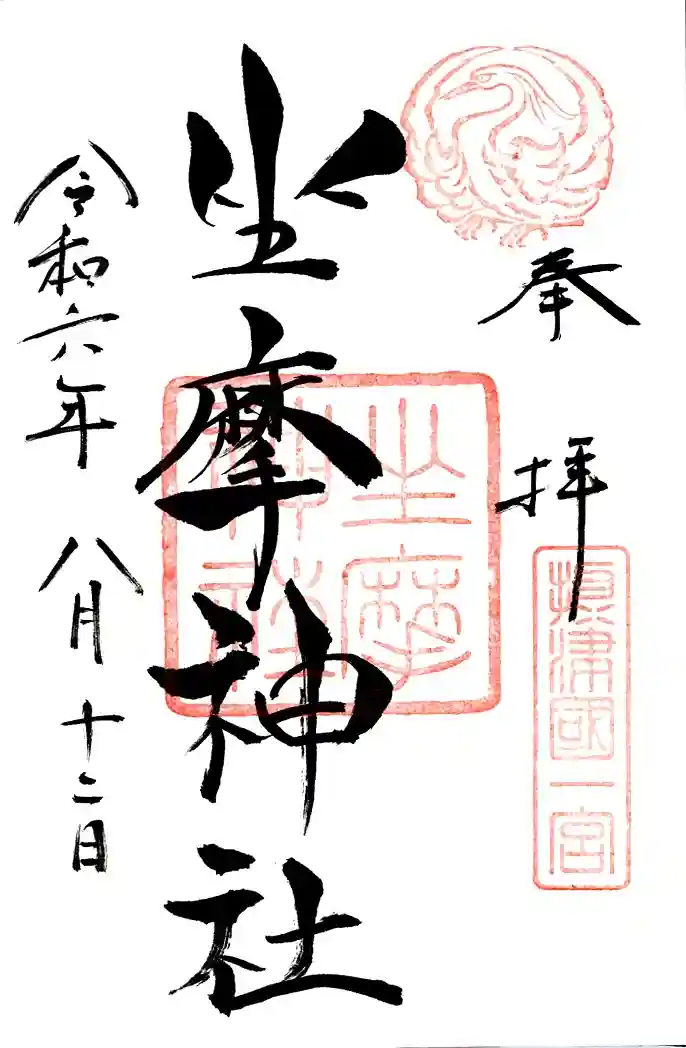 奉拝
摂津國一宮
坐摩神社
坐摩神社
令和六年八月十二日